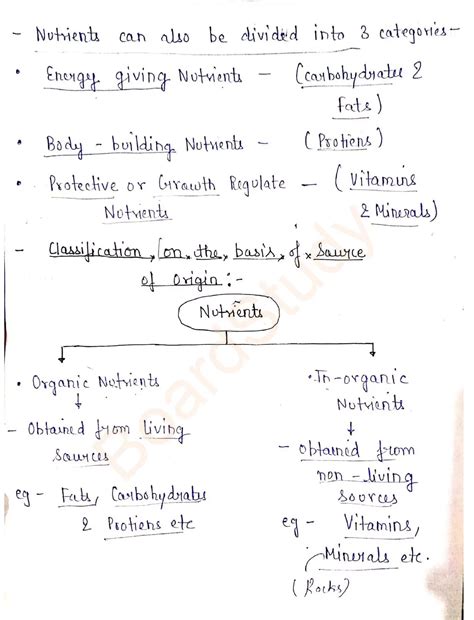 - Nutrients can also be divided into 3 categories-
• Energy giving Nutrients - (carbohydrates &
Fats)
• Body - building Nutrients - (Protiens)
• Protective or Growth Regulate - (Vitamins
Nutrients & Minerals)
- Classification, on the, basis, of source
of origin:-
Nutrients
• Organic Nutrients
- Obtained from living
sources
eg - Fats, Carbohydrates
& Protiens etc
• In-organic
Nutrients
- obtained from
non-living
sources
eg - Vitamins,
Minerals etc.
(Rocks)
BoardStudy